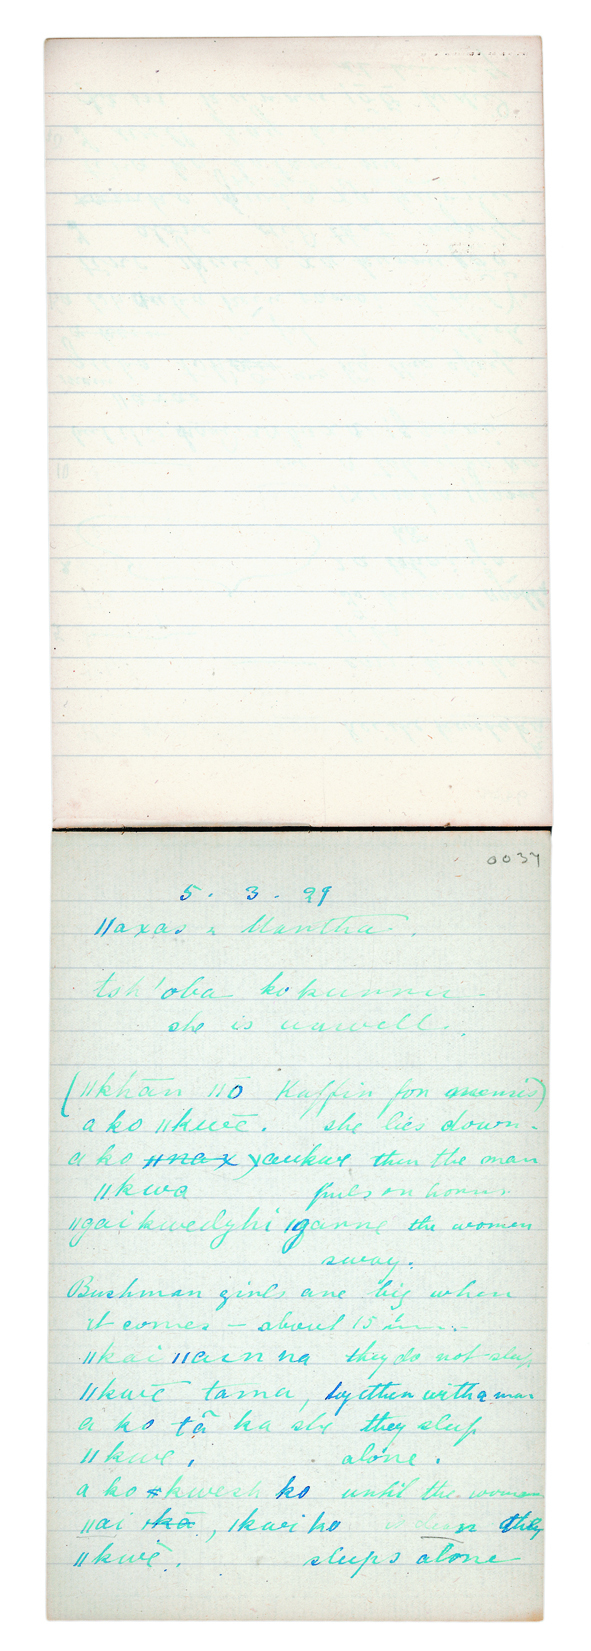 0037
5. 3. 29
||axas & Mantha.
tsh'oba ko kunnu -
she is unwell.
(||khān ||ō Kaffir for menses)
a ko ||kwē. she lies down.
a ko then the man
||kwa puts on horns
||gai kwedyhi ganne the women
sway.
Bushman girls are big when
it comes - about 15
||kai ||ainna they do not sleep
||kwē tama, together with a man
a ko tã ka she they sleep
||kwe, alone.
a ko kwesh ko until the woman
||ai kã, |kwi ho they
||kwē. sleeps alone